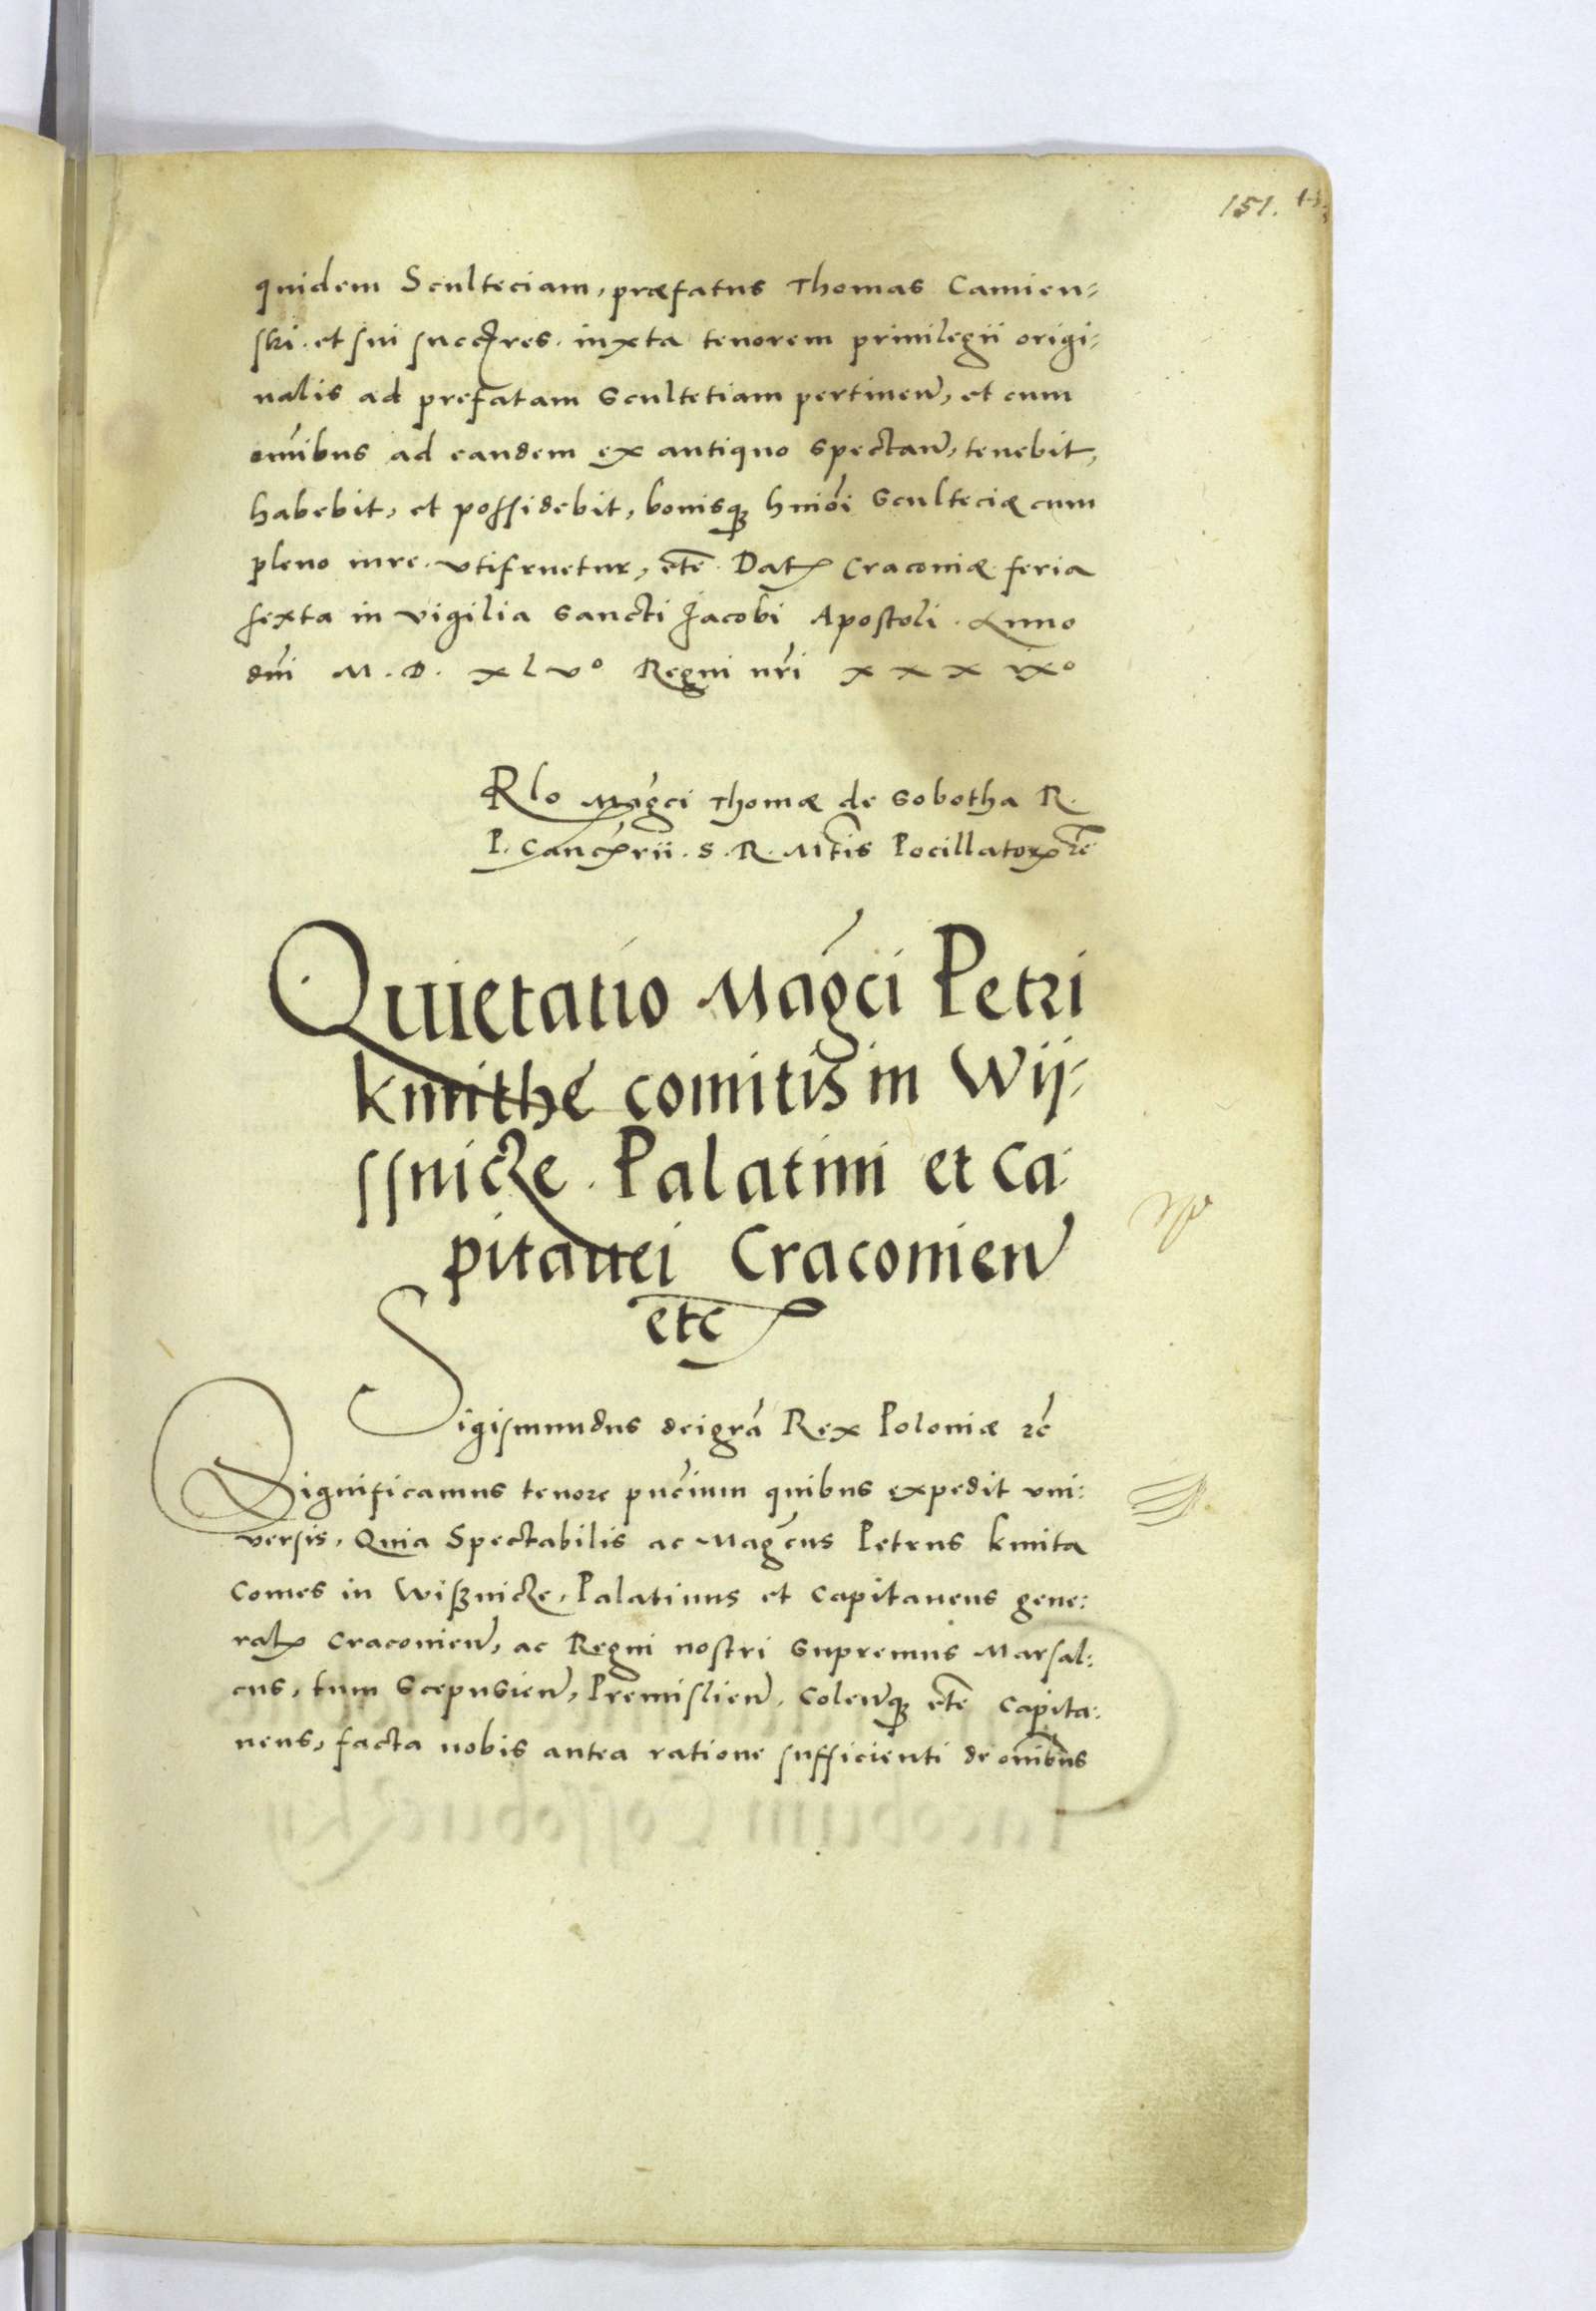 151.
quidem Sculteciam, præfatus Thomas Camien⸗
ski. et sui succ̄res. iuxta tenorem priuilegii origi⸗
nalis ad prefatam Scultetiam pertineñ, et cum
om̄ibus ad eandem ex antiquo spectañ, tenebit,
habebit, et possidebit, bonisq; hmōi Sculteciæ cum
pleno iure. vtifruetur, etc̄. Dat̄ Cracouiæ feria
sexta in vigilia Sancti Jacobi Apostoli. Anno
dn̄i M. D. XLVº Regni nr̄i XXXIXº
Rlo Mag̃ci Thomæ de Sobotha R.
P. Canc̄rii. S. R. Mt̄is Pocillator̄ ⁊c̄
Quietatio Mag̃ci Petri
kmithe comitis in Wij⸗
ssnicze. Palatini et Ca⸗
pitanei Cracouieñ
etc̄
Sigismundus deigrã Rex Poloniæ ⁊c̄
Significamus tenore pn̄cium quibus expedit vni⸗
versis, Quia Spectabilis ac Mag̃cus Petrus kmita
Comes in Wißnicze, Palatinus et Capitaneus gene⸗
ral̄ Cracouieñ, ac Regni nostri Supremus Marsal⸗
cus, tum Scepusieñ, Premislieñ, Coleñq; etc̄ Capita⸗
neus, facta nobis antea ratione sufficienti de om̄ibus